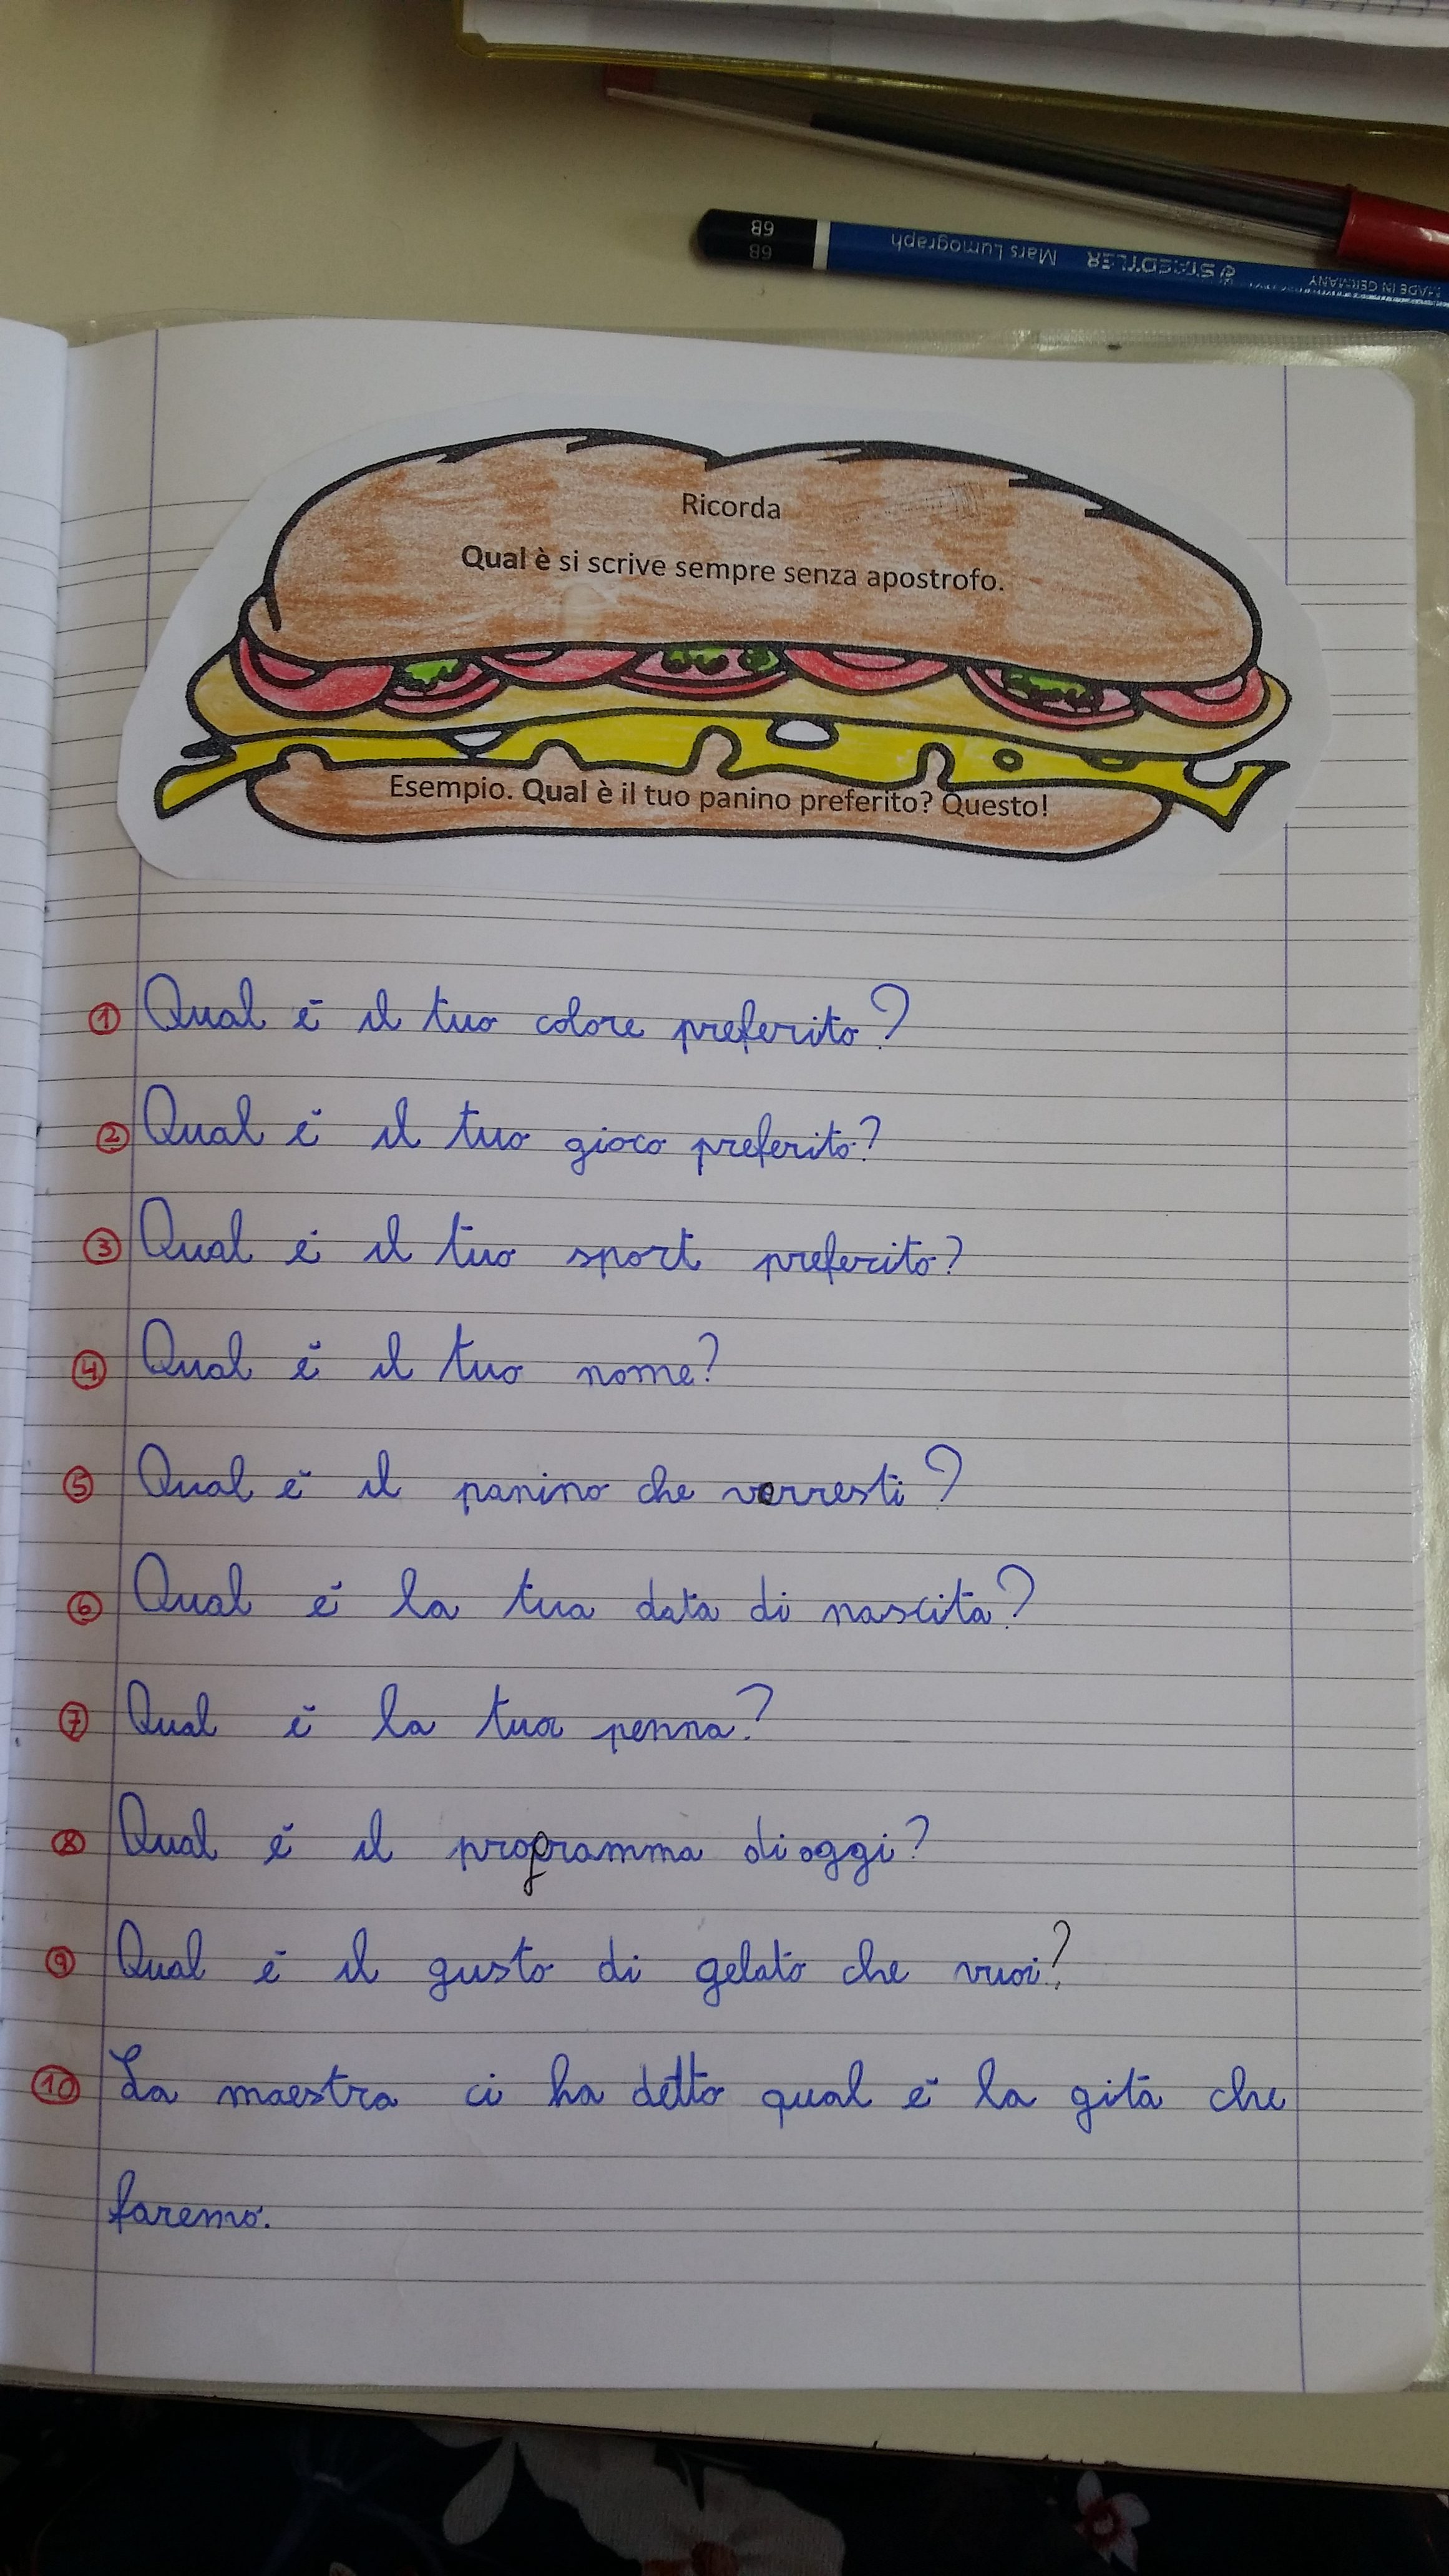 6B
6B
Mars Lumograph
STAEDTLER
MADE IN GERMANY
Ricorda
Qual è si scrive sempre senza apostrofo.
Esempio. Qual è il tuo panino preferito? Questo!
1 Qual è il tuo colore preferito?
2 Qual è il tuo gioco preferito?
3 Qual è il tuo sport preferito?
4 Qual è il tuo nome?
5 Qual è il panino che verresti?
6 Qual è la tua data di nascita?
7 Qual è la tua penna?
8 Qual è il programma di oggi?
9 Qual è il gusto di gelato che vuoi?
10 La maestra ci ha detto qual è la gita che
faremo.